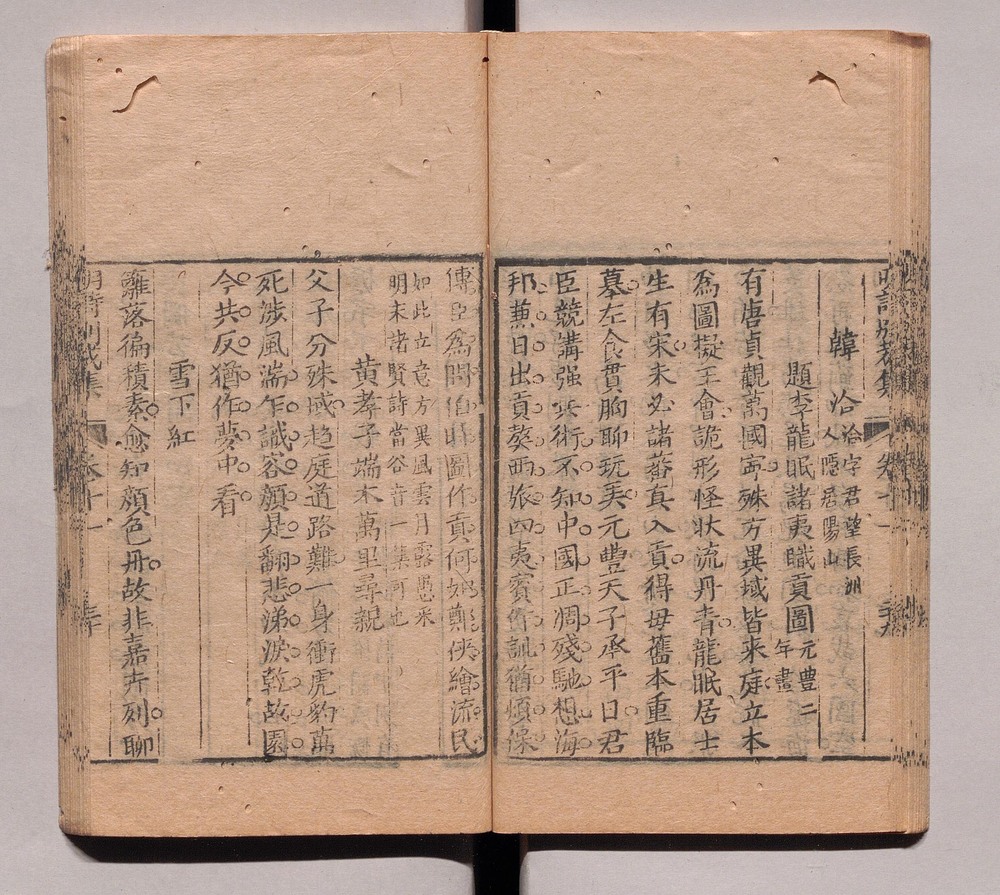 韓洽 洽字君望長洲人隱居陽山
題李龍眠諸夷職貢圖 元豊二年畫
有唐貞觀萬國寧殊方異域皆来庭立本
爲圖擬王會詭形怪状流丹青龍眠居士
生有宋未必諸蕃真入貢得毋舊本重臨
摹左食貫胸聊玩美元豊天子承平日君
臣競講强兵術不知中國正凋殘馳想海
邦兼日出貢獒西旅四夷賓作訓猶煩保
傅臣爲問伯時圖作貢何如鄭俠繪流民
如此立意方異風雲月露愚采
明末諸賢詩當谷音一集可也
黄孝子端木萬里尋親
父子分殊域趋庭道路難一身衝虎豹萬
死涉風湍乍識容顔是翻悲涕淚乾故園
今共反猶作夢中看
雪下紅
籬落徧積素愈知顔色丹故非嘉卉列聊
明詩别裁集 卷十一